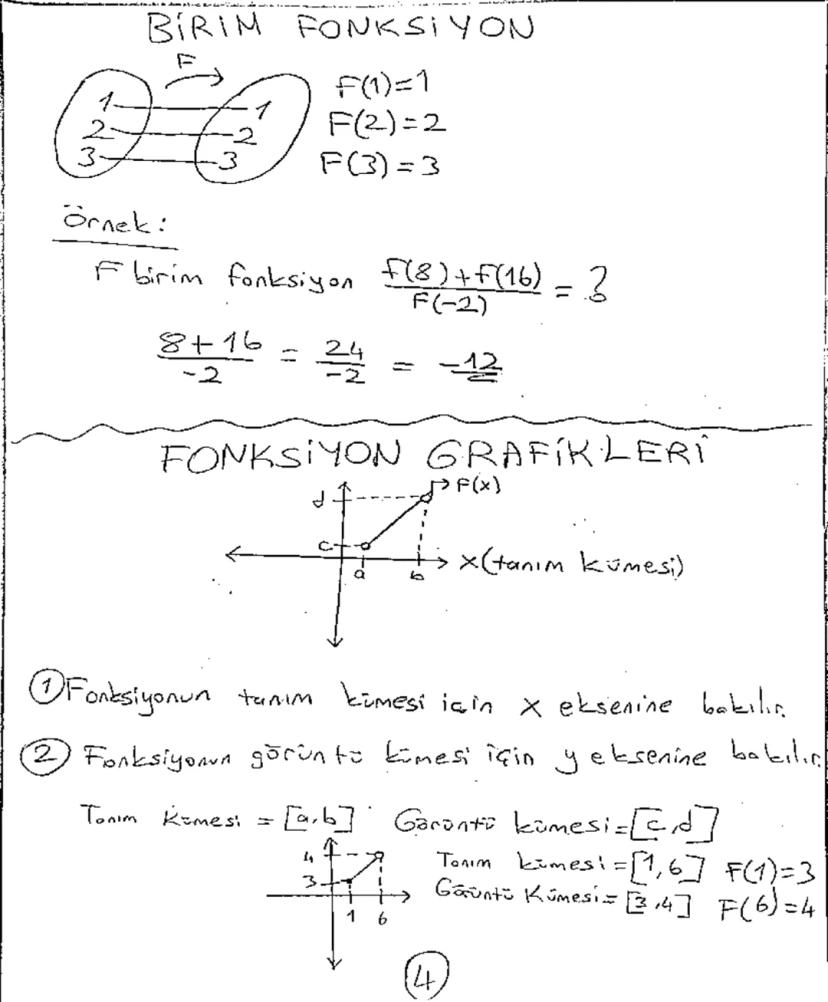 BİRİM FONKSİYON
F
1 1
2 2
3 3
F(1)=1
F(2)=2
F(3)=3
Örnek:
F birim fonksiyon f(8)+f(16) / F(-2) = ?
8+16 / -2 = 24 / -2 = -12
FONKSİYON GRAFİKLERİ
d F(x)
c
a b x(tanım kümesi)
① Fonksiyonun tanım kümesi için x eksenine bakılır.
② Fonksiyonun görüntü kümesi için y eksenine bakılır.
Tanım Kümesi = [a,b] Görüntü kümesi=[c,d]
4
3
1 6
Tanım kümesi=[1,6] F(1)=3
Görüntü Kümesi= [3,4] F(6)=4
④